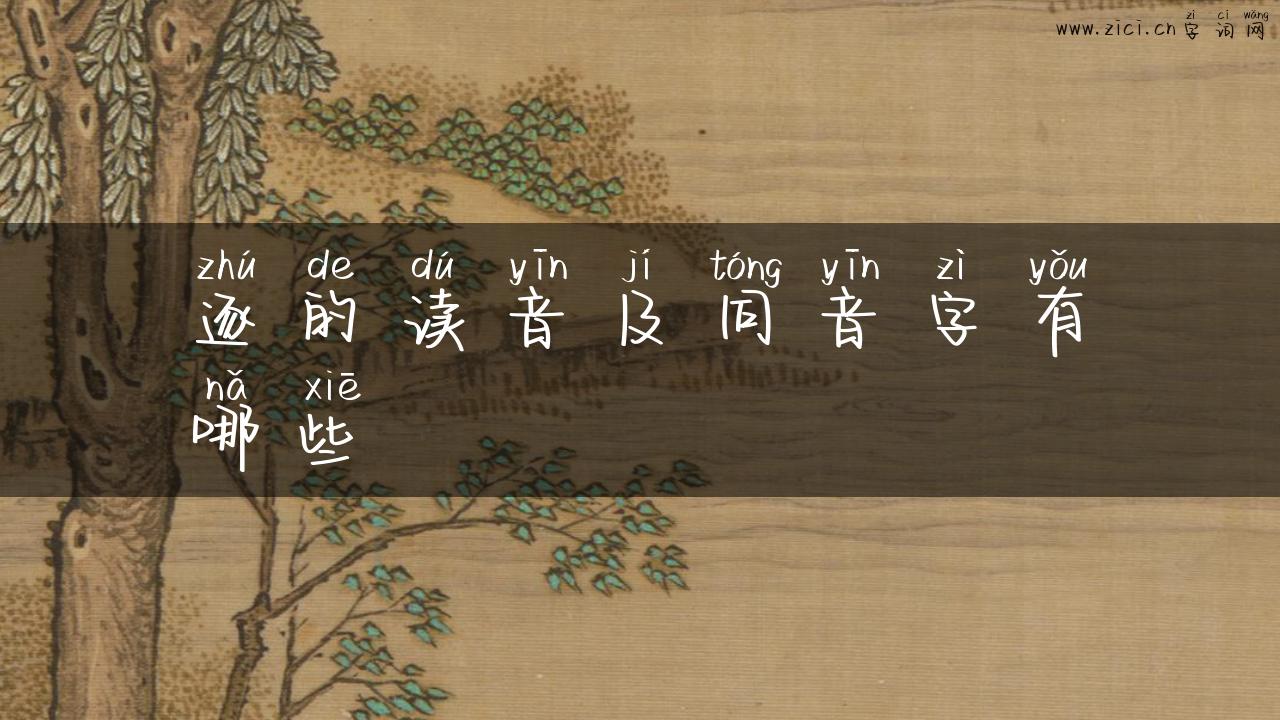 zì cí wǎng
www.zici.cn 字词网
zhú de dú yīn jí tóng yīn zì yǒu
逐的读音及同音字有
nǎ xiē
哪些